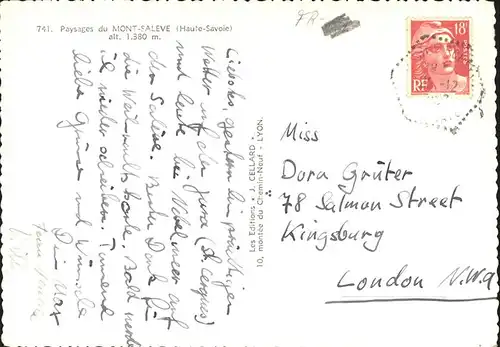 741. Paysages du MONT-SALEVE (Haute-Savoie)
alt. 1.380 m.
FR-
Liebstes, gestern bei prächtigem
Wetter auf der Jura (St Cergues)
und heute bei Nebelmeer auf
den Salève. Vielen Dank für
die Bald werde
ich wieder schreiben. Tausend
liebe Grüsse und Wünsche
Dein Max
Les Editions J. CELLARD
10, montée du Chemin-Neuf - LYON.
18F
POSTES
RF
Miss
Dora Grüter
78 Salmon Street
Kingsbury
London N.W.9